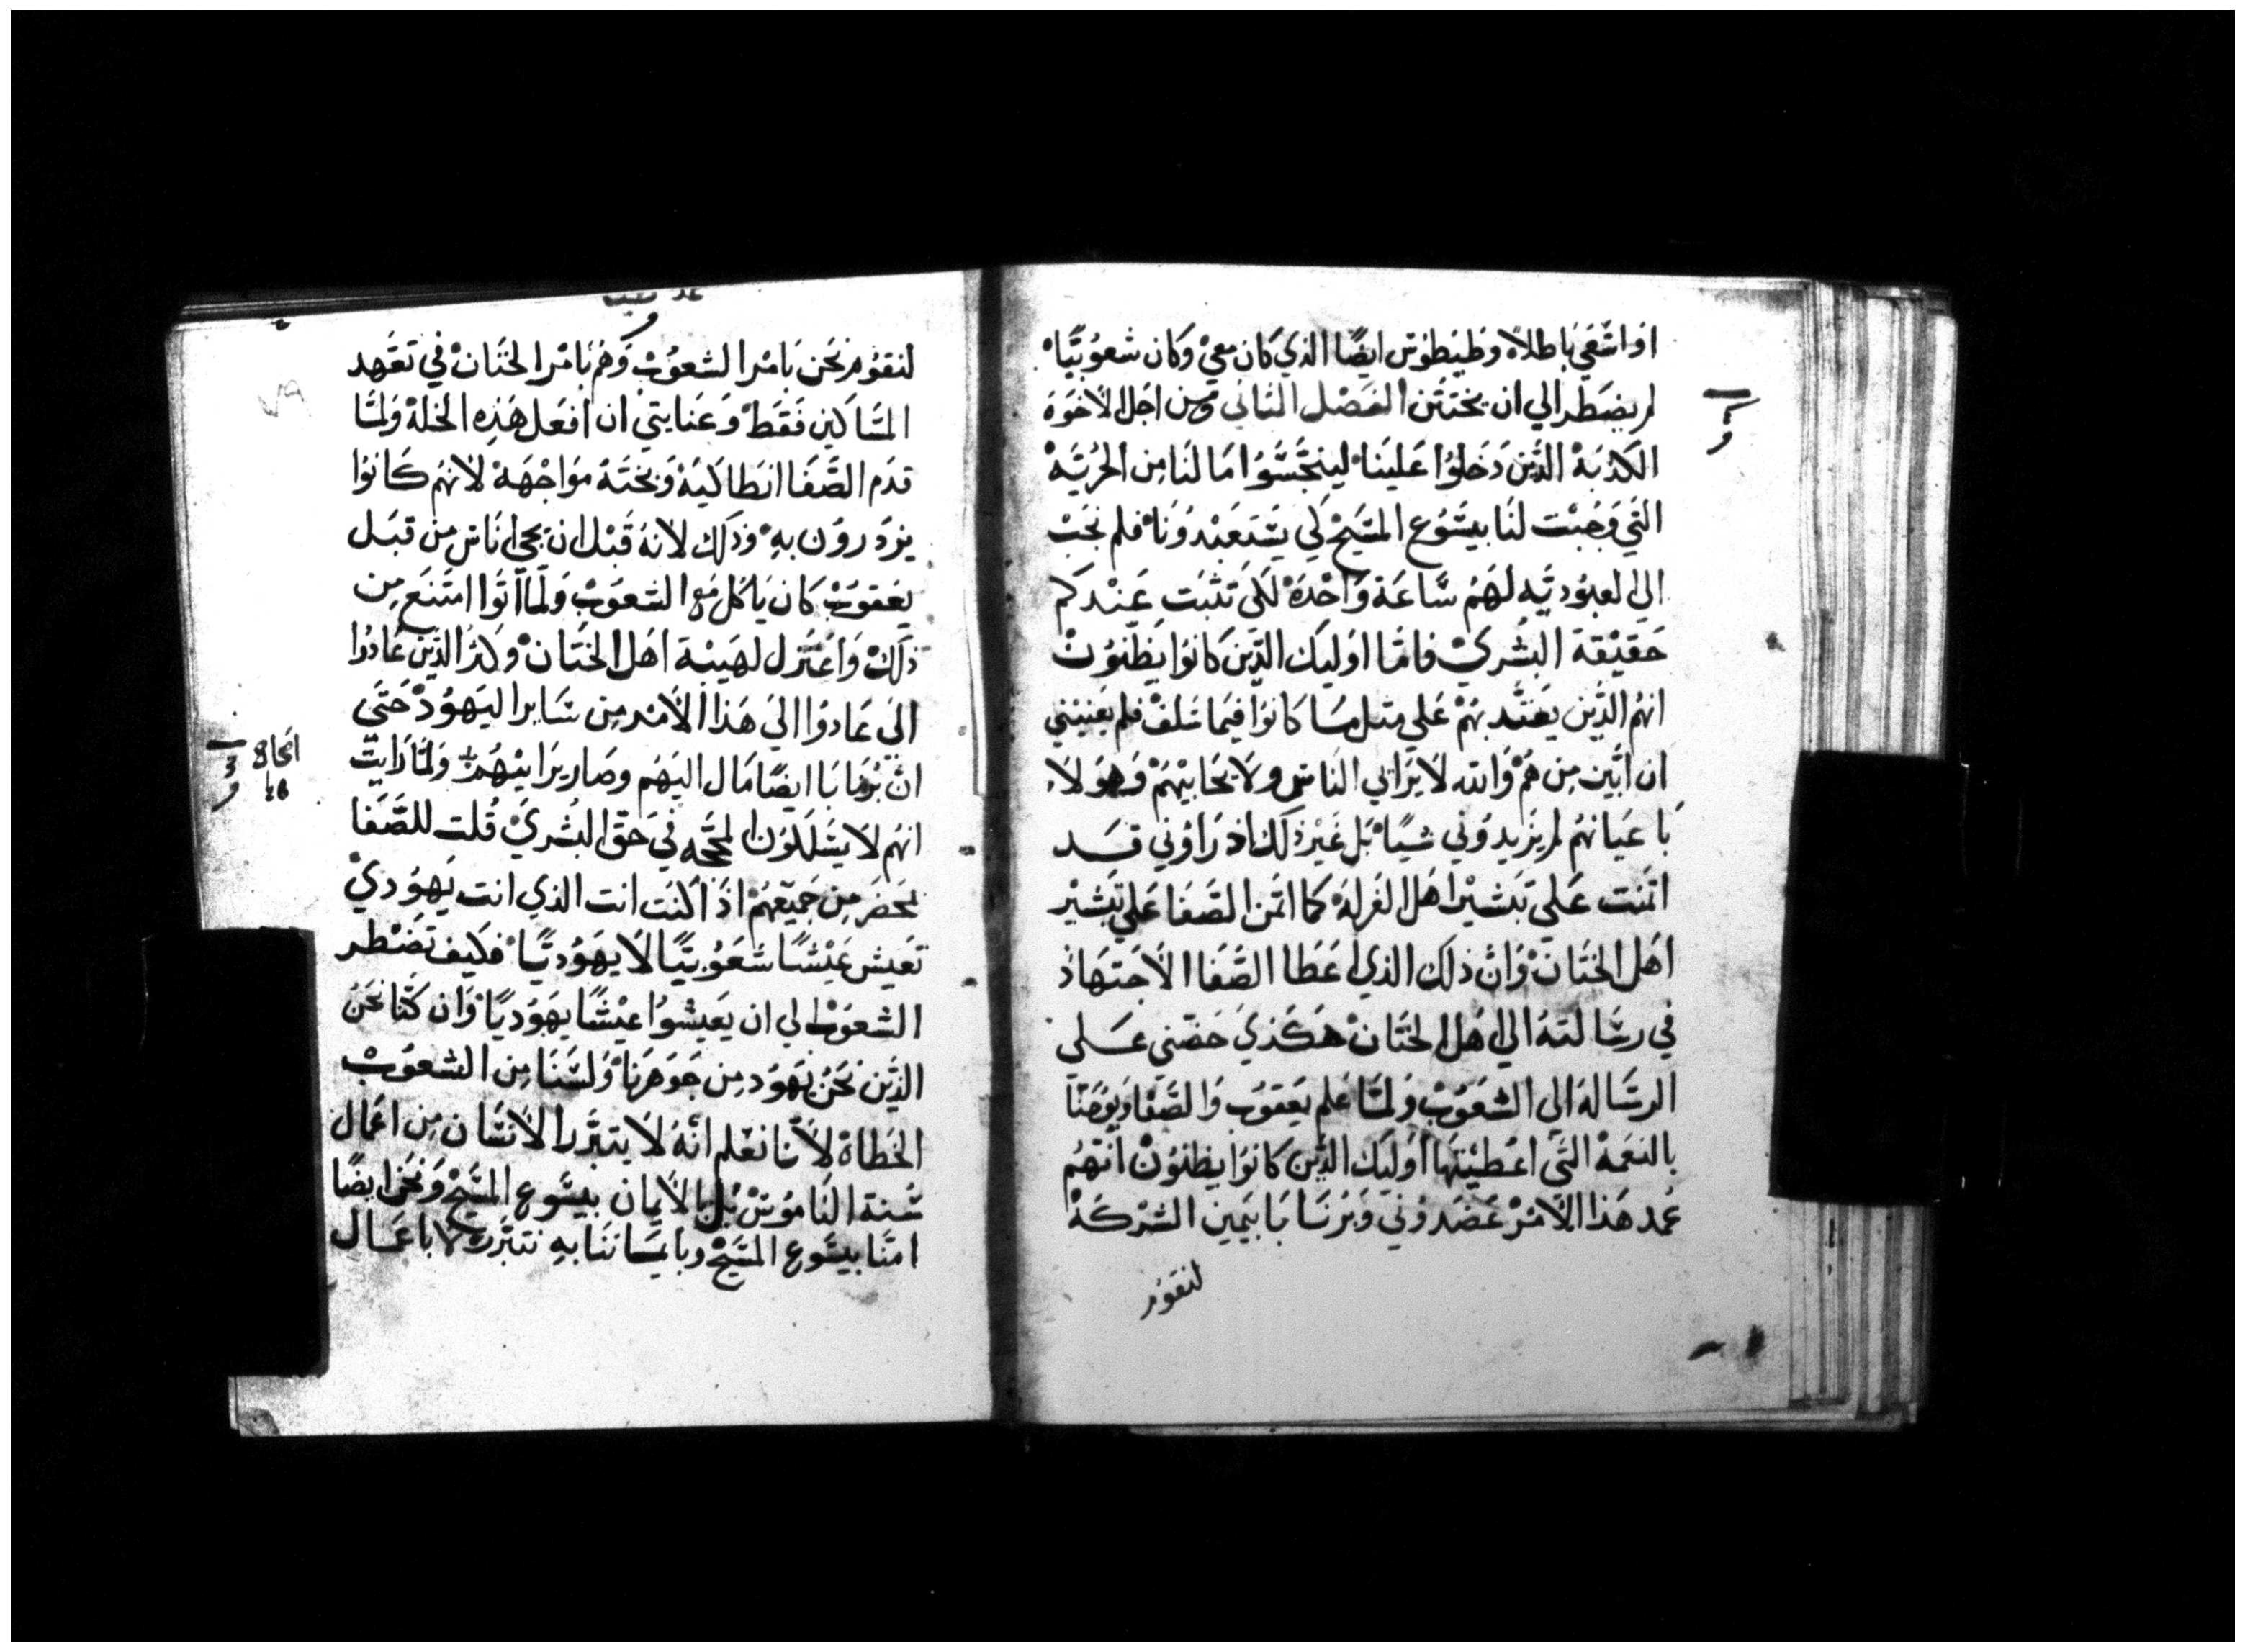 او اسعي باطلاً وطيطوس ايضًا الذي كان معي وكان شعوبيًا
لم يضطر الي ان يختتن الفصل الثاني ومن اجل الاخوة
الكذبة الذين دخلوا علينا ليتجسسوا ما لنا من الحرية
التي وجبت لنا بيسوع المسيح لكي يستعبدونا فلم نجب
الى العبودية لهم ساعة واحدة لكي تثبت عندكم
حقيقة البشري فاما اوليك الذين كانوا يظنون
انهم الذين يعتد بهم علي مثل ما كانوا فيما سلف فلم يعنيني
ان ابين من هم والله لا يرايي الناس ولا يحابيهم وهولاء
باعيانهم لم يزيدوني شيًا بل غير ذلك اذ راوني قد
اتمنت علي تبشير اهل الغرلة كما اتمن الصفا علي تبشير
اهل الختان وان ذلك الذي اعطا الصفا الاجتهاد
في رسالته الي اهل الختان هكذي حضني علي
الرسالة الي الشعوب ولما علم يعقوب والصفا ويوحنا
بالنعمة التي اعطيتها اوليك الذين كانوا يظنون انهم
عمد هذا الامر عضدوني وبرنابا بيمين الشركة
لنقوم
لنقوم نحن بامر الشعوب وهم بامر الختان في تعهد
المساكين فقط وعنايتي ان افعل هذه الخلة ولما
قدم الصفا انطاكية وبخته مواجهة لانهم كانوا
يزدرون به وذلك لانه قبل ان يجي اناس من قبل
يعقوب كان ياكل مع الشعوب ولما اتوا امتنع من
ذلك واعتزل لهيبة اهل الختان وكثر الذين عادوا
الى عادوا الي هذا الامر من ساير اليهود حتي
ان برنابا ايضًا مال اليهم وصار يرايهم ولما رايت
انهم لا يسلكون المحجه في حق البشري قلت للصفا
بمحضر من جميعهم اذا كنت انت الذي انت يهودي
تعيش عيشًا شعوبيًا لا يهوديًا فكيف تضطر
الشعوب الي ان يعيشوا عيشًا يهوديًا وان كنا نحن
الذين نحن يهود من جوهرنا ولسنا من الشعوب
الخطاة لاننا نعلم انه لا يتبرر الانسان من اعمال
سنة الناموس بل بالايمان بيسوع المسيح ونحن ايضًا
امنا بيسوع المسيح وبايماننا به نتبرر لا باعمال